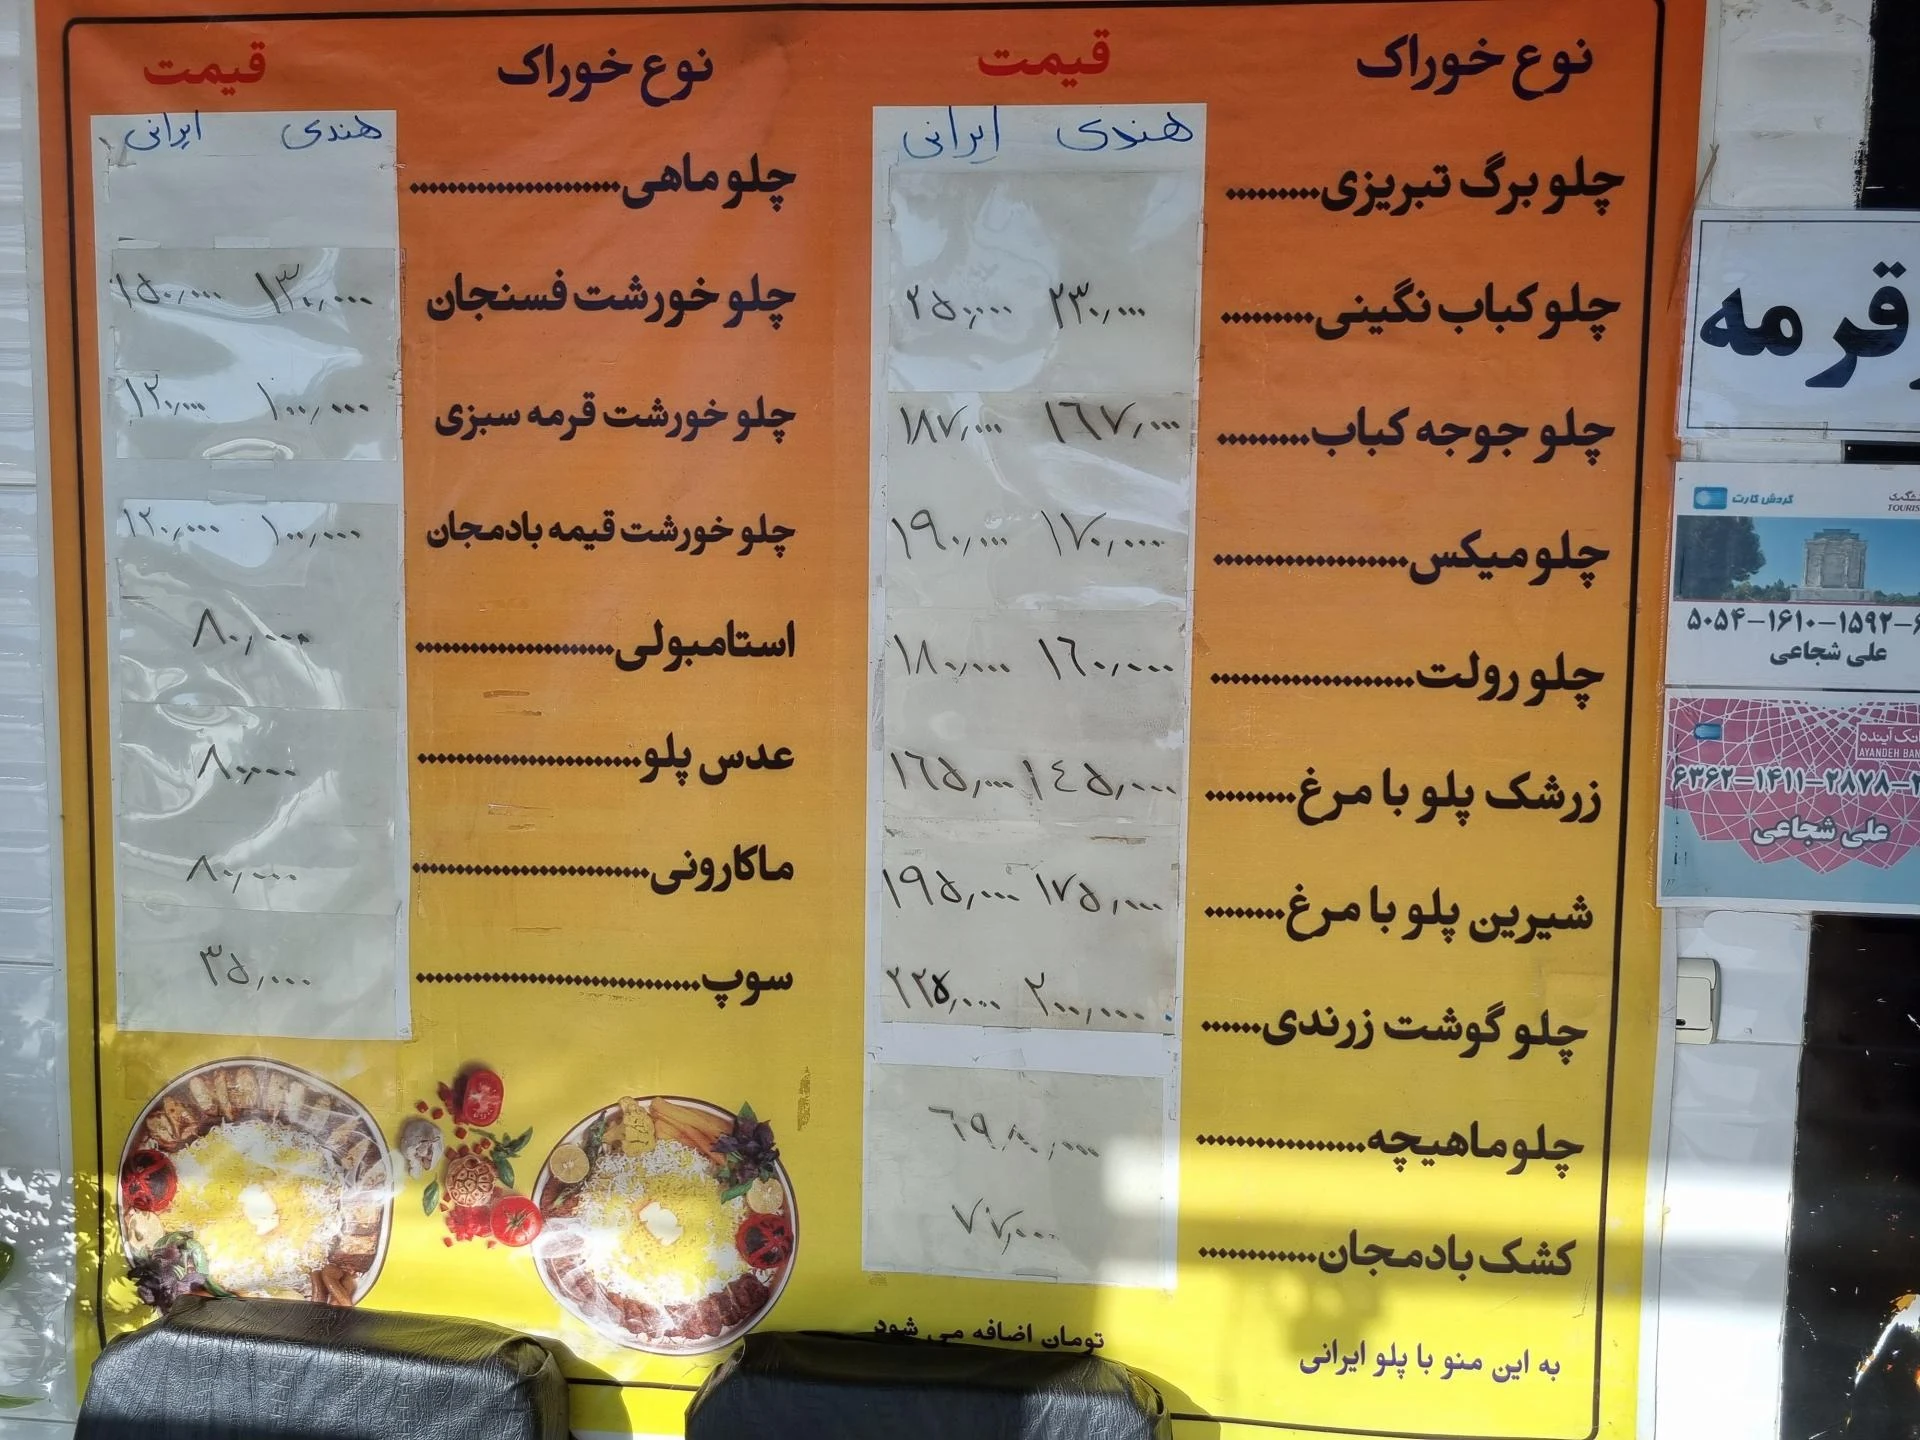 نوع خوراک قیمت
هندی ایرانی
چلو برگ تبریزی..........
چلو کباب نگینی.......... ۲۳۰٫۰۰۰ ۲۵۰٫۰۰۰
چلو جوجه کباب.......... ۱۶۷٫۰۰۰ ۱۸۷٫۰۰۰
چلو میکس.................... ۱۷۰٫۰۰۰ ۱۹۰٫۰۰۰
چلو رولت..................... ۱۶۰٫۰۰۰ ۱۸۰٫۰۰۰
زرشک پلو با مرغ.......... ۱۴۵٫۰۰۰ ۱۶۵٫۰۰۰
شیرین پلو با مرغ......... ۱۷۵٫۰۰۰ ۱۹۵٫۰۰۰
چلو گوشت زرندی....... ۲۰۰٫۰۰۰ ۲۲۵٫۰۰۰
چلو ماهیچه..................
کشک بادمجان............. ۷۷٫۰۰۰
به این منو با پلو ایرانی تومان اضافه می شود
نوع خوراک قیمت
هندی ایرانی
چلو ماهی.......................
چلو خورشت فسنجان ۱۳۰٫۰۰۰ ۱۵۰٫۰۰۰
چلو خورشت قرمه سبزی ۱۰۰٫۰۰۰ ۱۲۰٫۰۰۰
چلو خورشت قیمه بادمجان ۱۰۰٫۰۰۰ ۱۲۰٫۰۰۰
استامبولی...................... ۸۰٫۰۰۰
عدس پلو......................... ۸۰٫۰۰۰
ماکارونی.......................... ۸۰٫۰۰۰
سوپ............................... ۳۵٫۰۰۰
قرمه
گردش کارت
۵۰۵۴-۱۶۱۰-۱۵۹۲-۶
علی شجاعی
بانک آینده
AYANDEH BAN
۶۳۶۲-۱۴۱۱-۲۸۷۸-۲
علی شجاعی